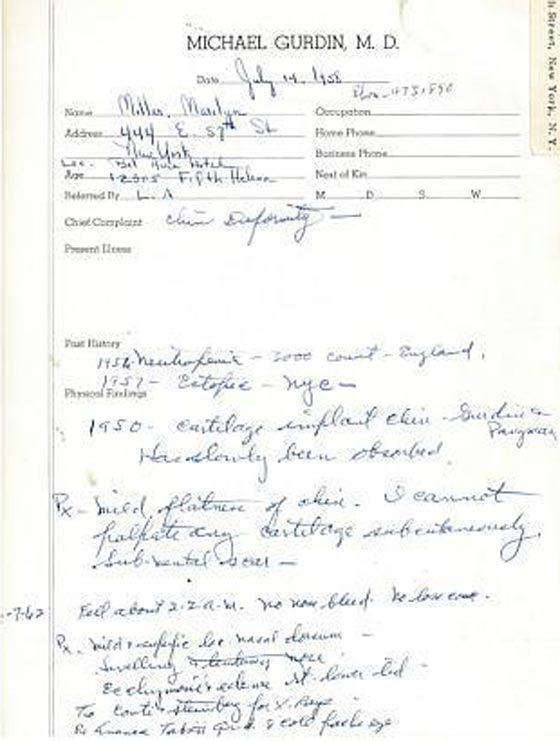 h Street, New York, N.Y.
MICHAEL GURDIN, M. D.
Date July 14, 1958
Name Miller, Marilyn Occupation
Address 444 E. 57th St Home Phone
New York Business Phone
Loc. Bel Hotel
Age 12305 Fifth Helena Next of Kin
Referred By L. A M D S W
Chief Complaint chin Deformity —
Present Illness
Past History
1956 Neutropenia - 3000 count - England.
1957 - Ectopic - NYC -
Physical Findings
1950 - cartilage implant chin - Gurdin &
Pangman
Has slowly been absorbed
Px - Mild flatness of chin. I cannot
palpate any cartilage subcutaneously
Sub-mental scar —
-7-62 Fell about 2-2 a.m. No nose bleed. No loss cons.
Px. Mild loc. nasal dorsum -
Swelling nose
Ecchymosis & edema lt. lower lid -
To Conti for X-Rays
Rx & cold packs